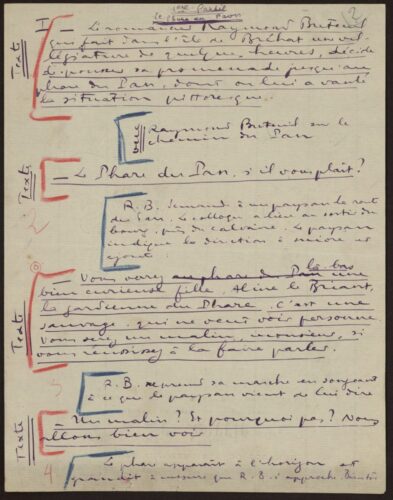 1ère Partie
Le Phare du Paon
2
Texte
I — Le romancier Raymond Breteuil
qui fait dans l'île de Bréhat un vil-
légiature de quelques heures, décide
de pousser sa promenade jusqu'au
Phare du Paon, dont on lui a vanté
la situation pittoresque.
vue
Raymond Breteuil sur le
chemin du Paon
Texte
— Le Phare du Paon, s'il vous plait?
2
R. B. demande à un paysan la route
du Paon. Le colloque a lieu au sortir du
bourg, près du calvaire. Le paysan
indique la direction à suivre et
ajoute
Texte
— Vous verrez au phare du Paon là-bas une
bien curieuse fille, Aline le Briant,
la gardienne du Phare. C'est une
sauvage, qui ne veut voir personne
Vous serez un malin, monsieur, si
vous réussissez à la faire parler.
3
R. B. reprend sa marche en songeant
à ce que le paysan vient de lui dire
Texte
— Un malin? Et pourquoi pas? Nous
allons bien voir
4
Le phare apparaît à l'horizon et
grandit à mesure que R. B. s'approche.